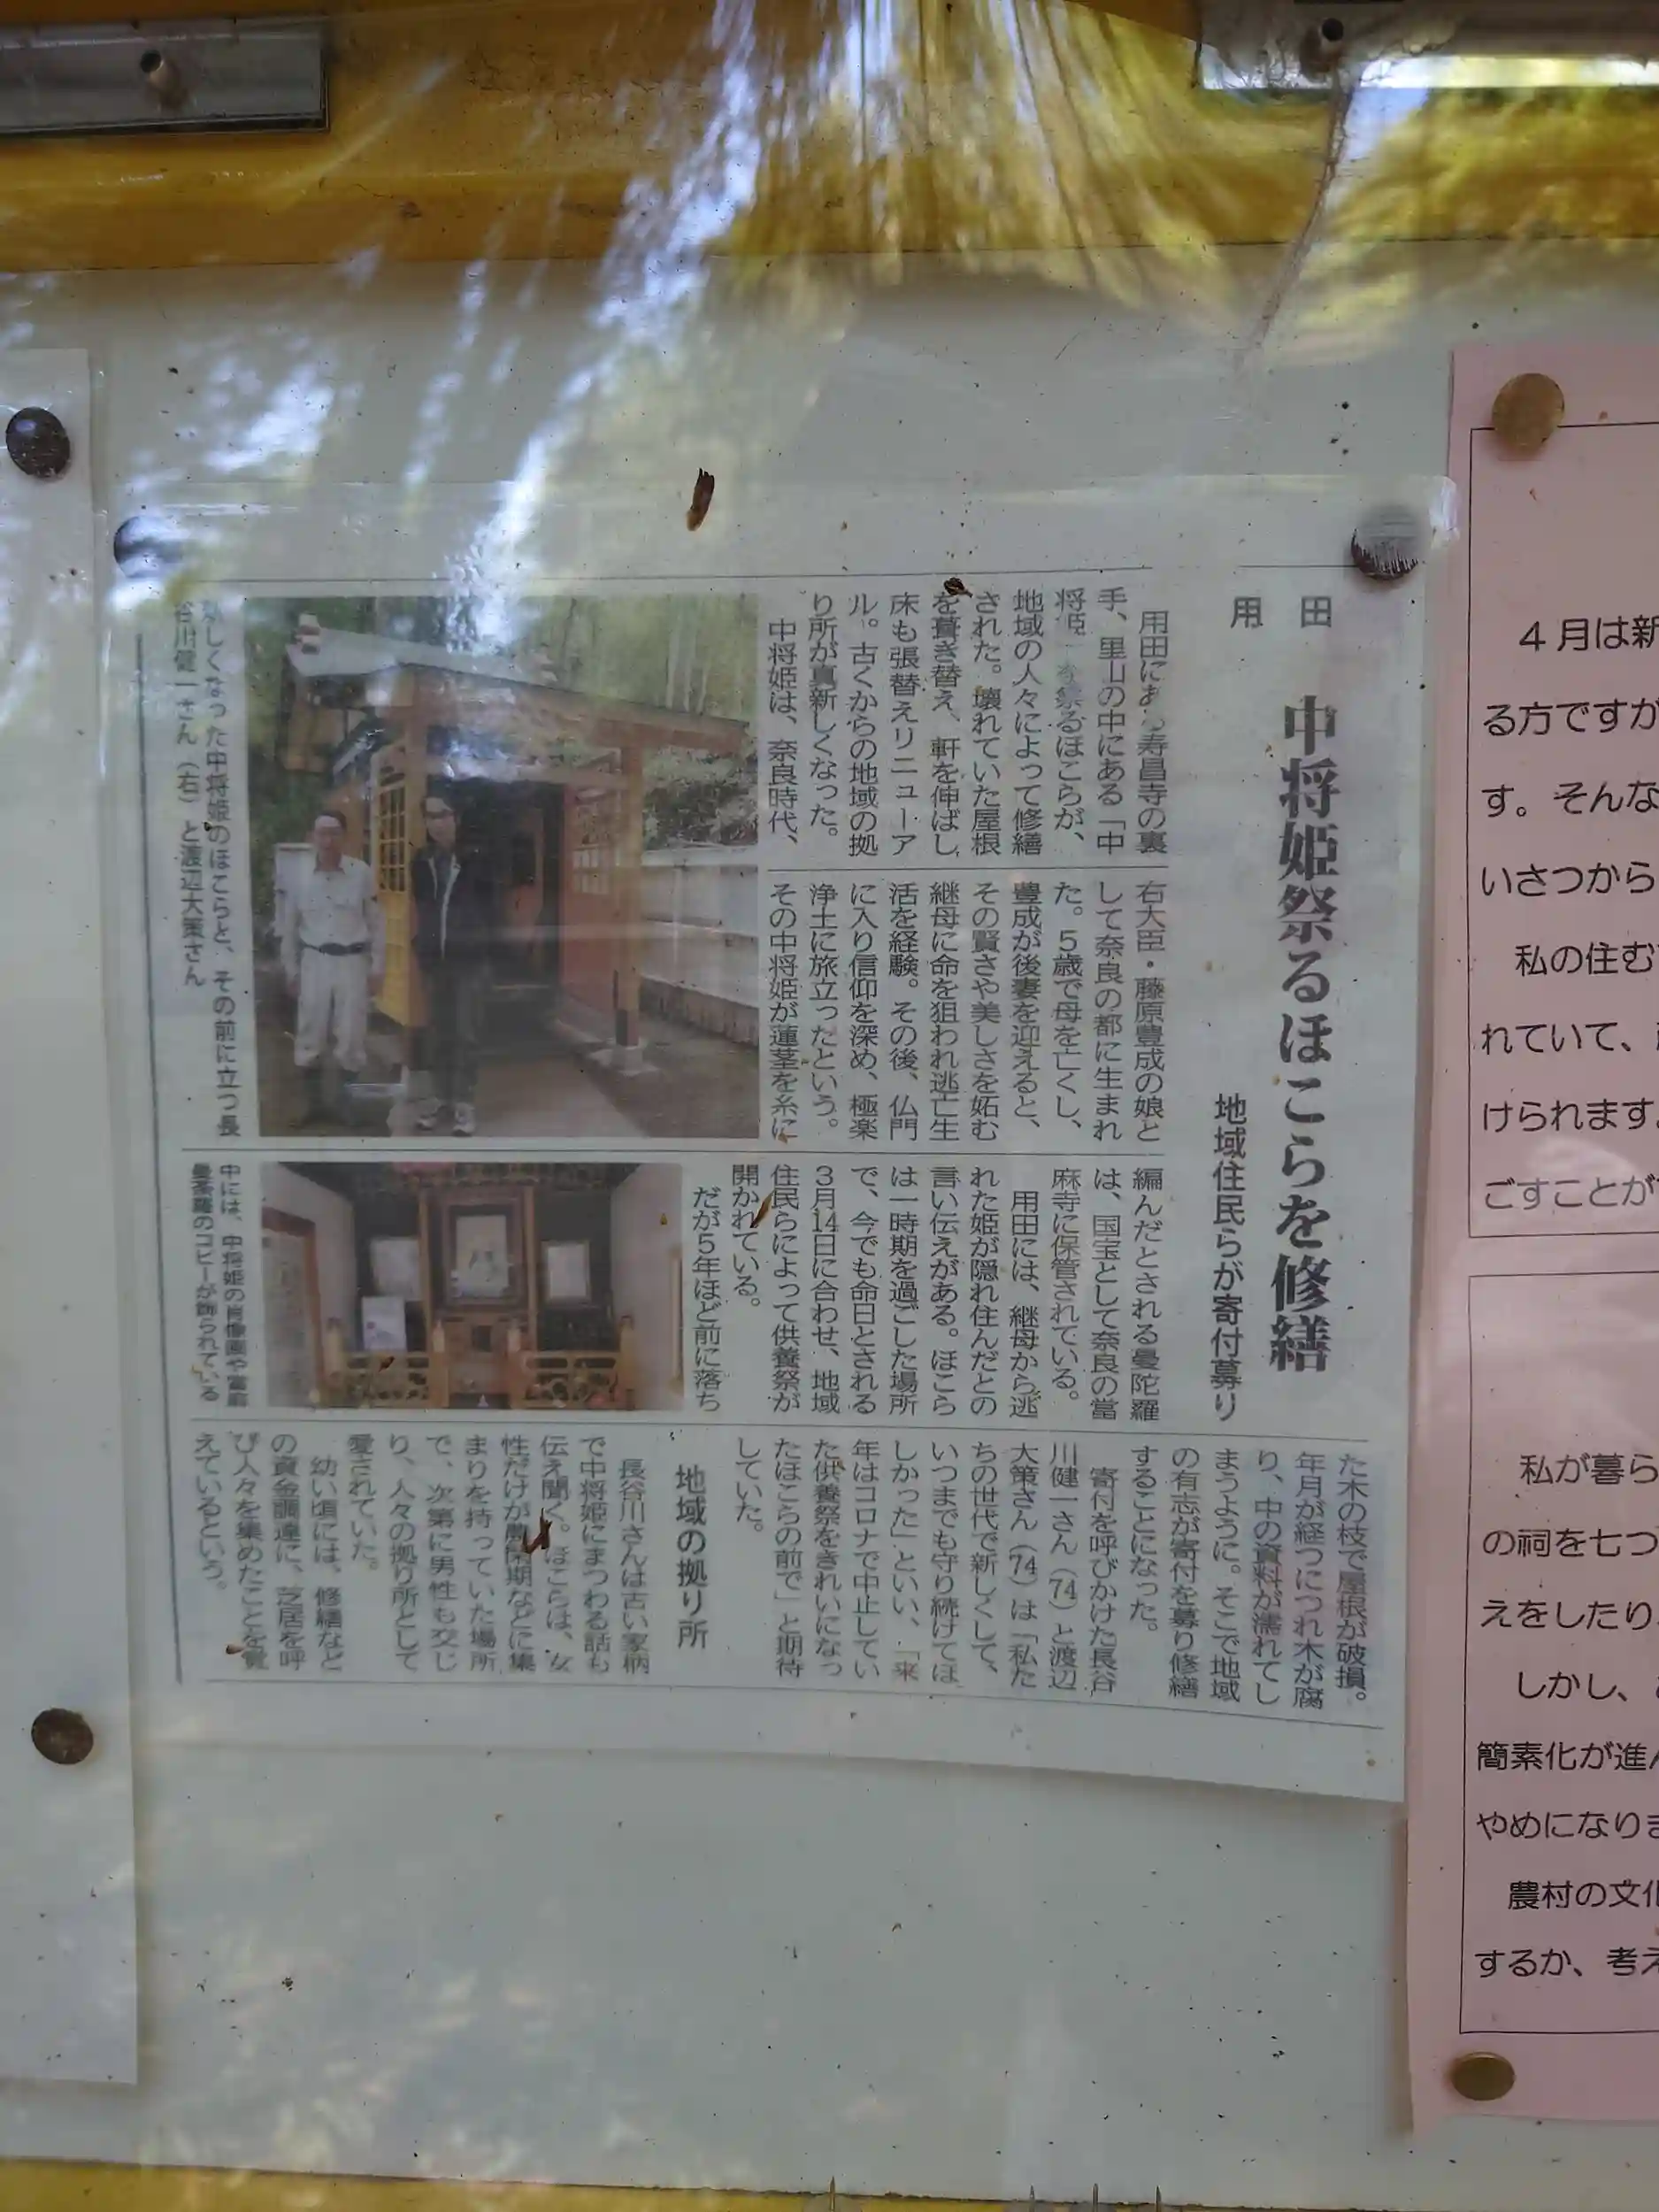 用田
中将姫祭るほこらを修繕
地域住民らが寄付募り
用田にある寿昌寺の裏
手、里山の中にある「中
将姫」を祭るほこらが、
地域の人々によって修繕
された。壊れていた屋根
を葺き替え、軒を伸ばし
床も張替えリニューア
ル。古くからの地域の拠
り所が真新しくなった。
中将姫は、奈良時代、
右大臣・藤原豊成の娘と
して奈良の都に生まれ
た。5歳で母を亡くし、
豊成が後妻を迎えると、
その賢さや美しさを妬む
継母に命を狙われ逃亡生
活を経験。その後、仏門
に入り信仰を深め、極楽
浄土に旅立ったという。
その中将姫が蓮茎を糸に
編んだとされる曼陀羅
は、国宝として奈良の當
麻寺に保管されている。
用田には、継母から逃
れた姫が隠れ住んだとの
言い伝えがある。ほこら
は一時期を過ごした場所
で、今でも命日とされる
3月14日に合わせ、地域
住民らによって供養祭が
開かれている。
だが5年ほど前に落ち
た木の枝で屋根が破損。
年月が経つにつれ木が腐
り、中の資料が濡れてし
まうように。そこで地域
の有志が寄付を募り修繕
することになった。
寄付を呼びかけた長谷
川健一さん(74)と渡辺
大策さん(74)は「私た
ちの世代で新しくして、
いつまでも守り続けてほ
しかった」といい、「来
年はコロナで中止してい
た供養祭をきれいになっ
たほこらの前で」と期待
していた。
地域の拠り所
長谷川さんは古い家柄
で中将姫にまつわる話も
伝え聞く。ほこらは、女
性だけが農閑期などに集
まりを持っていた場所
で、次第に男性も交じ
り、人々の拠り所として
愛されていた。
幼い頃には、修繕など
の資金調達に、芝居を呼
び人々を集めたことを覚
えているという。
新しくなった中将姫のほこらと、その前に立つ長
谷川健一さん(右)と渡辺大策さん
中には、中将姫の肖像画や當麻
曼荼羅のコピーが飾られている
4月は新
る方ですが
す。そんな
いさつから
私の住む
れていて、
けられます。
ごすことが
私が暮ら
の祠を七つ
えをしたり
しかし、
簡素化が進
やめになりま
農村の文化
するか、考え